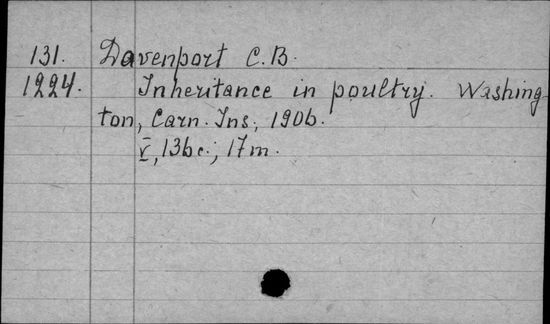 131. Davenport C.B.
1224. Inheritance in poultry. Washing-
ton, Carn. Ins., 1906.
V, 136 c., 17 m.